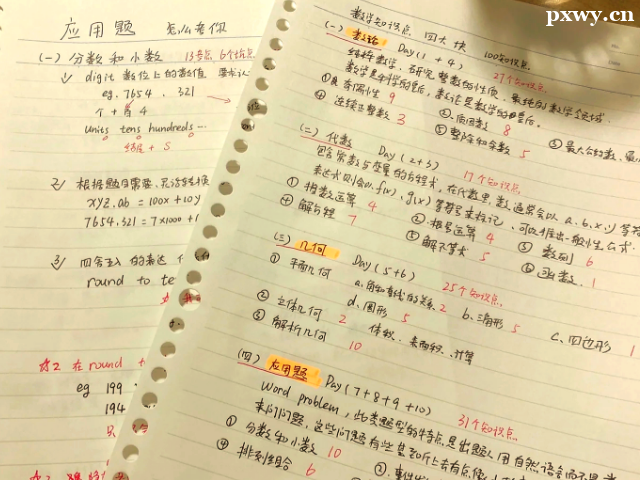 pxwy.cn
应用题 怎么考你
(一) 分数和小数 13考点
1) digit 数位上的数值
eg. 7654. 321
个 + 百 4
units tens hundreds …
结尾 + S
2) 根据题目需要,灵活转换
xyz.ab = 100x + 10y
7654.321 = 7×1000 +
3) 四舍五入的表达
round to te
☆2 在 round
eg 199
194
数学知识点 四大块 100知识点
(一) 数论 Day(1 + 4) 27个知识点
纯粹数学,研究整数的性质,最纯的数学领域
数学是科学的皇后,数论是数学的皇后。
①奇偶性 9 ②质因数 8 ③最大公约数、最
④连续正整数 3 ⑤整除和余数 5
(二) 代数 Day(2+3) 17个知识点
包含常数与变量的方程式,在代数里,数通常会以 a、b、x、y 等符
表达式则会以 f(x)、g(x) 等符号来标记,可以推出一般性公式
①指数运算 4 ②根号运算 4 ③数列 6
④解方程 7 ⑤解不等式 5 ⑥函数 1
(三) 几何 Day(5+6) 25个知识点
①平面几何 a.角和直线的关系 2 b.三角形 5 c.四边形 1
d.圆形 5
②立体几何 2 体积、表面积、计算
③解析几何 10
(四) 应用题 Day(7+8+9+10) 31个知识点
Word problem, 此类题型的特点是出题人用自然语言而不是
来问问题,这些问题有些甚至听上去有点
①分数和小数 10
④排列组合 6